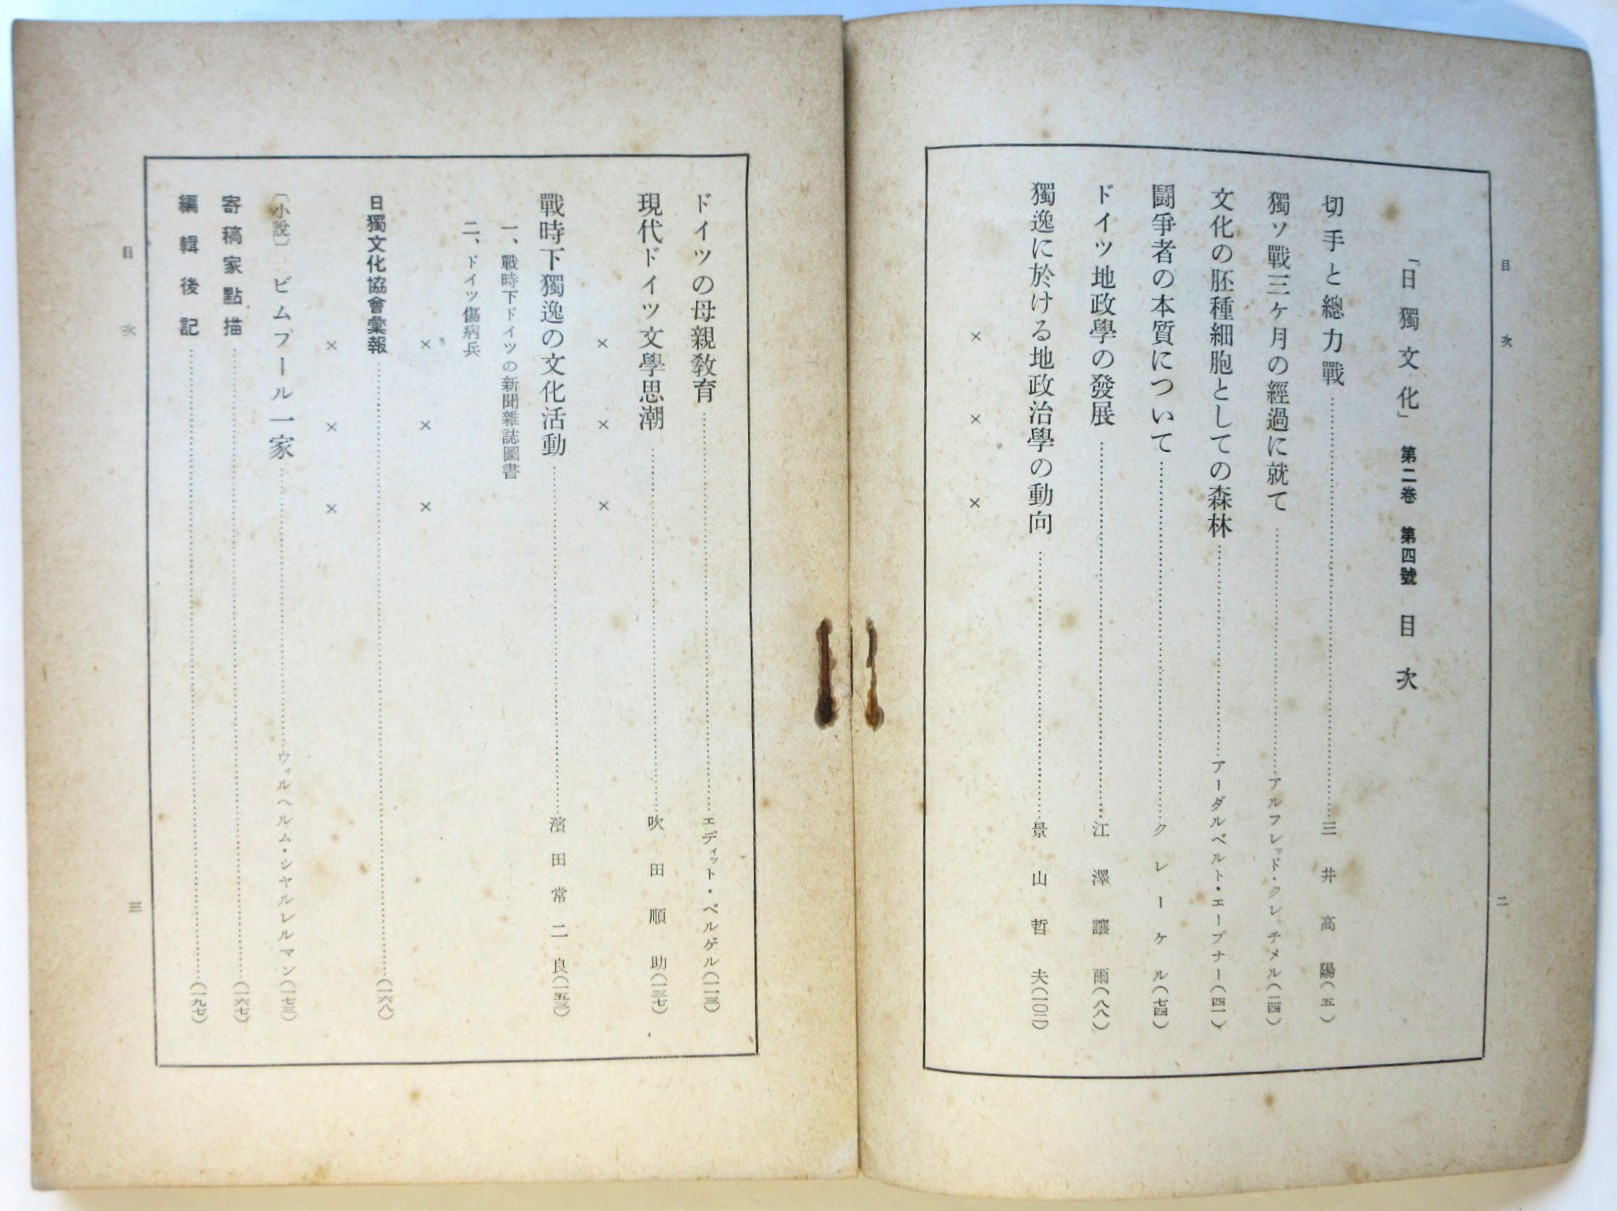 目次
二
「日獨文化」 第二卷 第四號 目次
切手と總力戰……三井高陽(五)
獨ソ戰三ケ月の經過に就て……アルフレッド・クレチメル(二四)
文化の胚種細胞としての森林……アーダルベルト・エーブナー(四一)
鬪爭者の本質について……クレーケル(七四)
ドイツ地政學の發展……江澤讓爾(八八)
獨逸に於ける地政治學の動向……景山哲夫(一〇二)
× × ×
ドイツの母親敎育……エディット・ベルゲル(一一三)
現代ドイツ文學思潮……吹田順助(一三七)
× × ×
戰時下獨逸の文化活動……濱田常二良(一五三)
一、戰時下ドイツの新聞雜誌圖書
二、ドイツ傷病兵
× × ×
日獨文化協會彙報……(一六八)
× × ×
〔小說〕 ビムプール一家……ウィルヘルム・シヤルレルマン(一七三)
寄稿家點描……(一六七)
編輯後記……(一九七)
目次
三